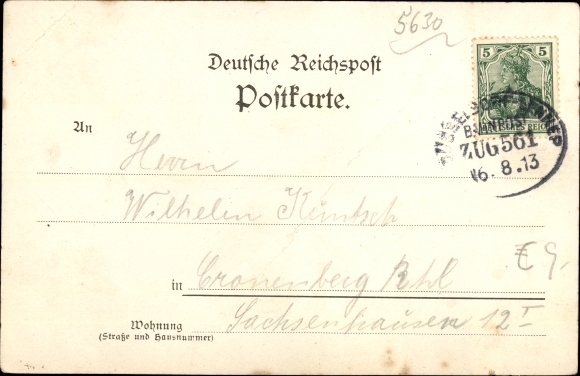 5630
Deutsche Reichspost
Postkarte.
5 5
BAHNPOST
ZUG 561
16.8.13
An Herrn
Wilhelm Küntsch
€ 9.
in Cronenberg Rhl
Wohnung
(Straße und Hausnummer)
Sachsenhausen 12 I